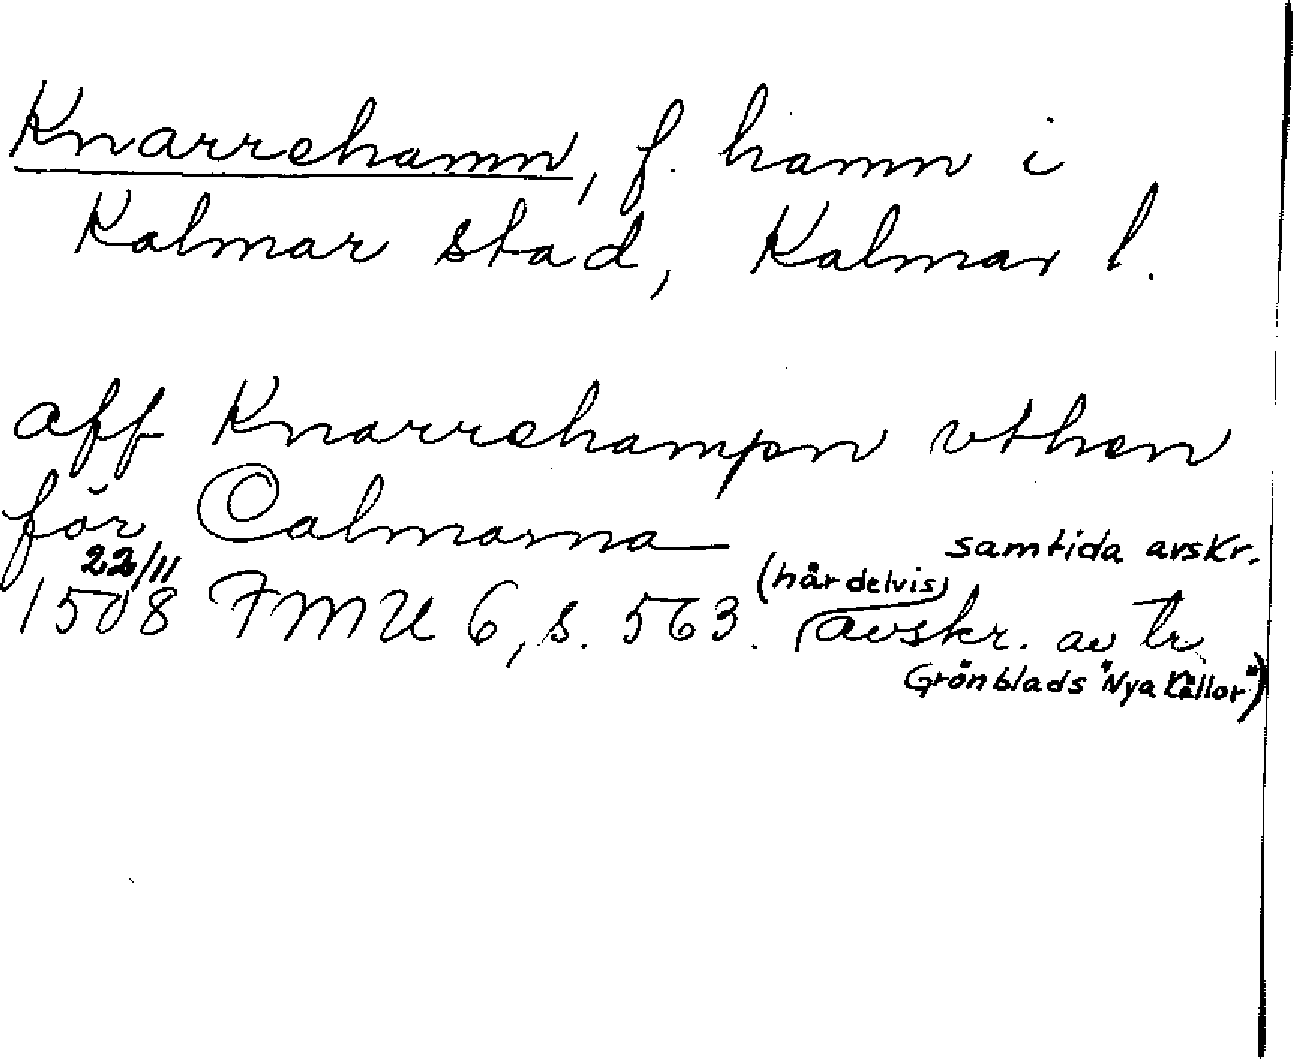 Knarrehamn, f. hamn i
Kalmar stad, Kalmar l.
aff Knarrehampn vthen
för Calmarna
samtida avskr.
22/11 (här delvis)
1508 FMU 6, s. 563. (avskr. av tr.
Grönblads "Nya Källor")